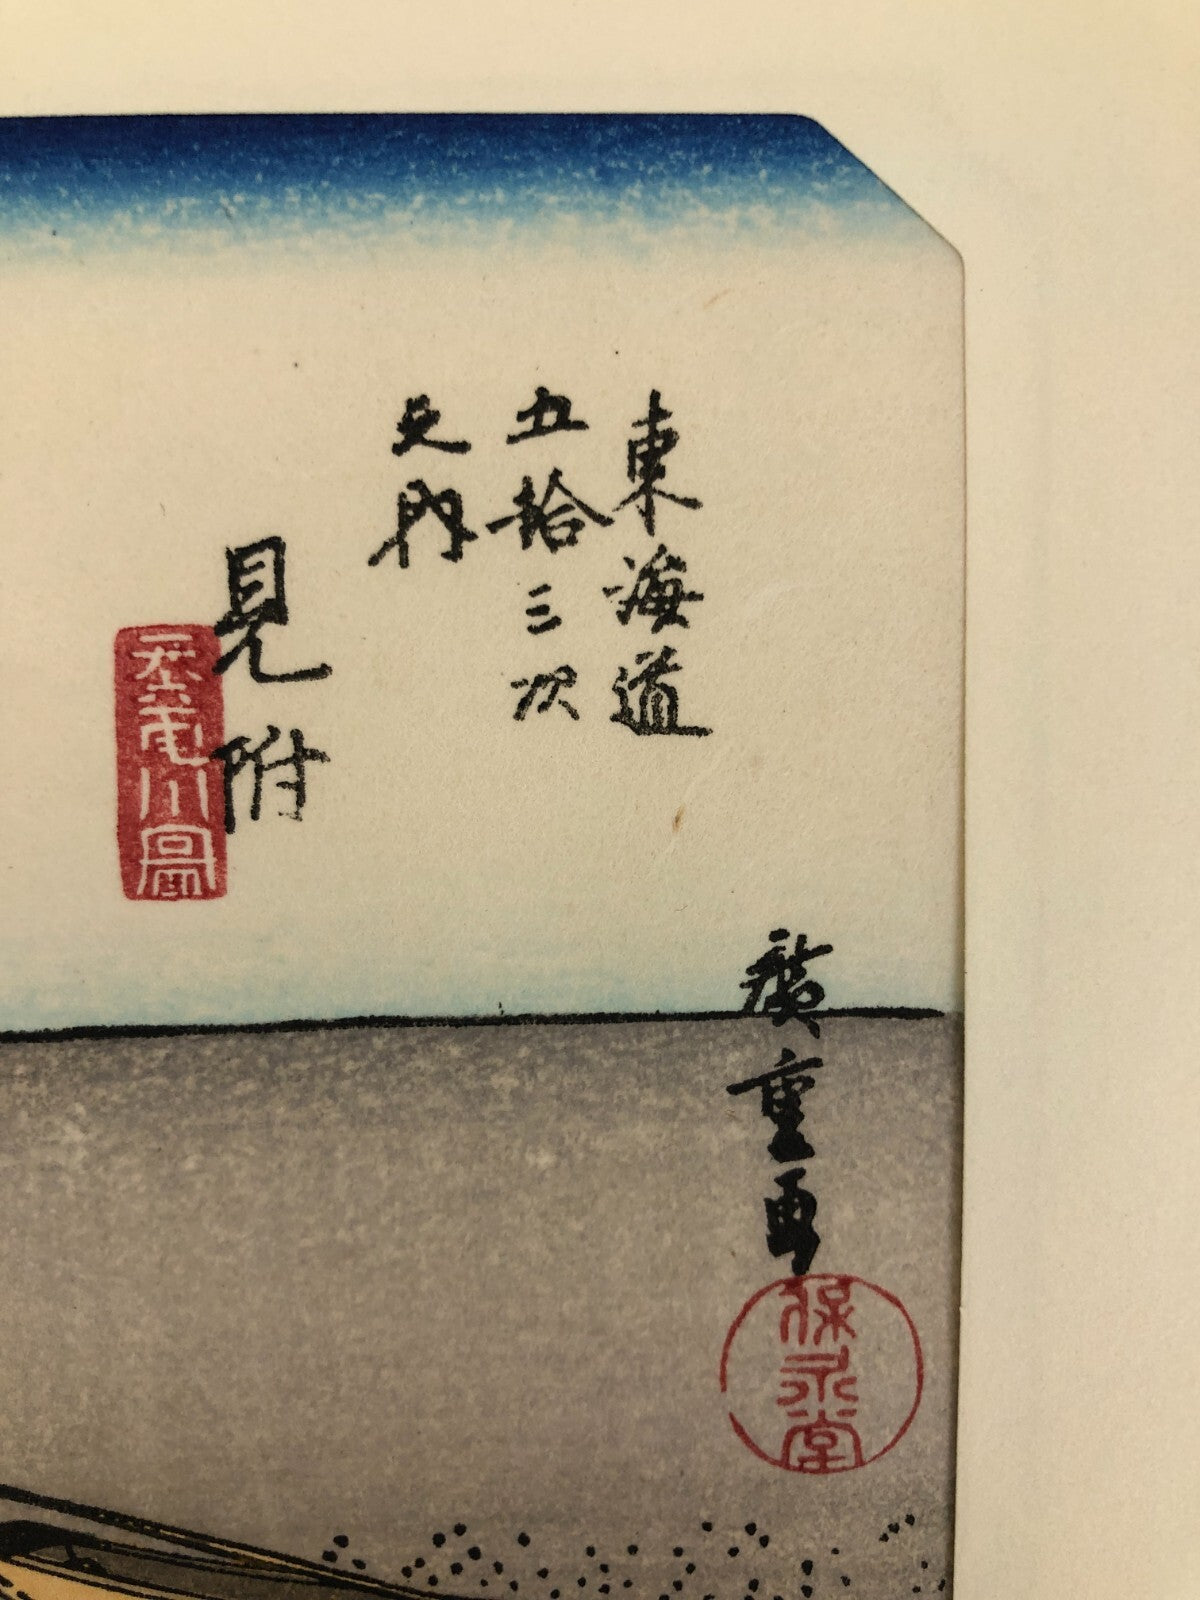 東海道
五拾三次
之内
見附
天竜川図
廣重画
保永堂